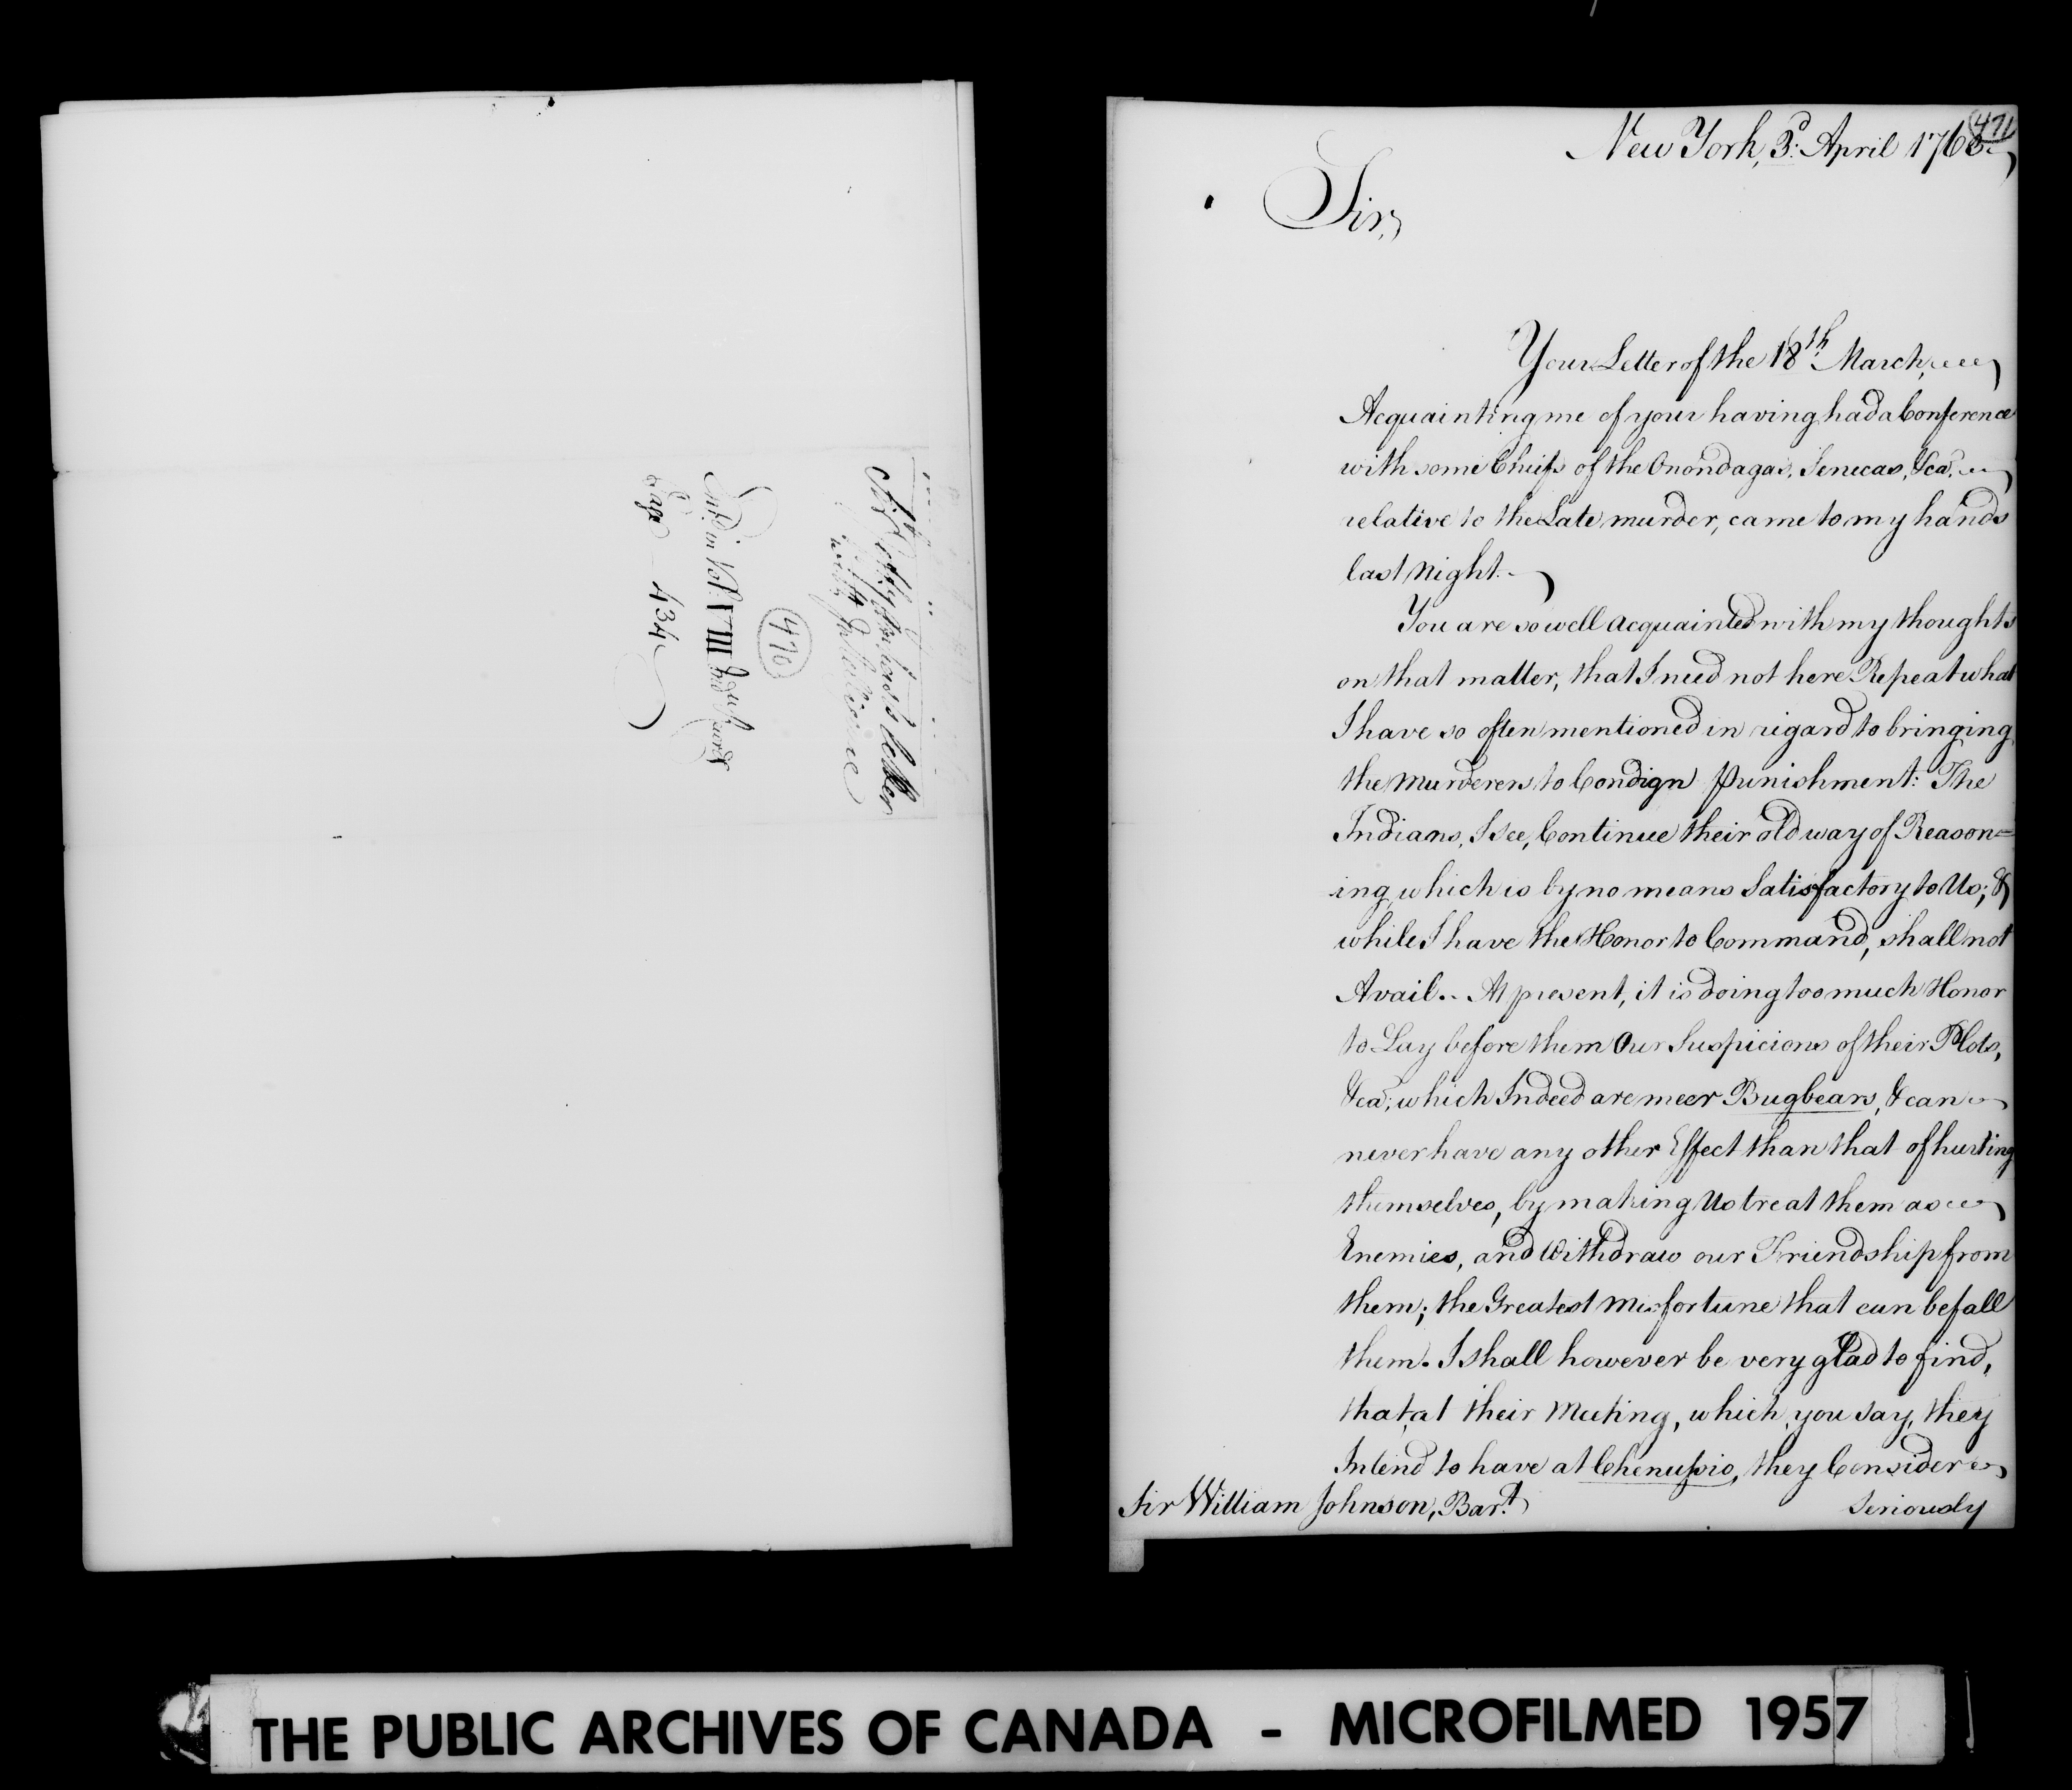 470
Entd. in Vol. VIII Indn. Records
Page 434
471
New York, 3d. April 1763.
Sir,
Your Letter of the 18th. March,
Acquainting me of your having had a Conference
with some Chiefs of the Onondagas, Senecas, &ca.
relative to the Late murder, came to my hands
last Night.
You are so well acquainted with my thoughts
on that matter, that I need not here Repeat what
I have so often mentioned in regard to bringing
the Murderers to Condign Punishment: The
Indians, I see, Continue their old way of Reason=
ing, which is by no means Satisfactory to Us; &
while I have the Honor to Command, shall not
Avail. At present, it is doing too much Honor
to Lay before them Our Suspicions of their Plots,
&ca; which Indeed are meer Bugbears, & can
never have any other Effect than that of hurting
themselves, by making Us treat them as
Enemies, and Withdraw our Friendship from
them; the Greatest Misfortune that can befall
them. I shall however be very glad to find,
that, at their Meeting, which, you say, they
Intend to have at Chenussio, they Consider
Sir William Johnson, Bart.
Seriously
THE PUBLIC ARCHIVES OF CANADA - MICROFILMED 1957